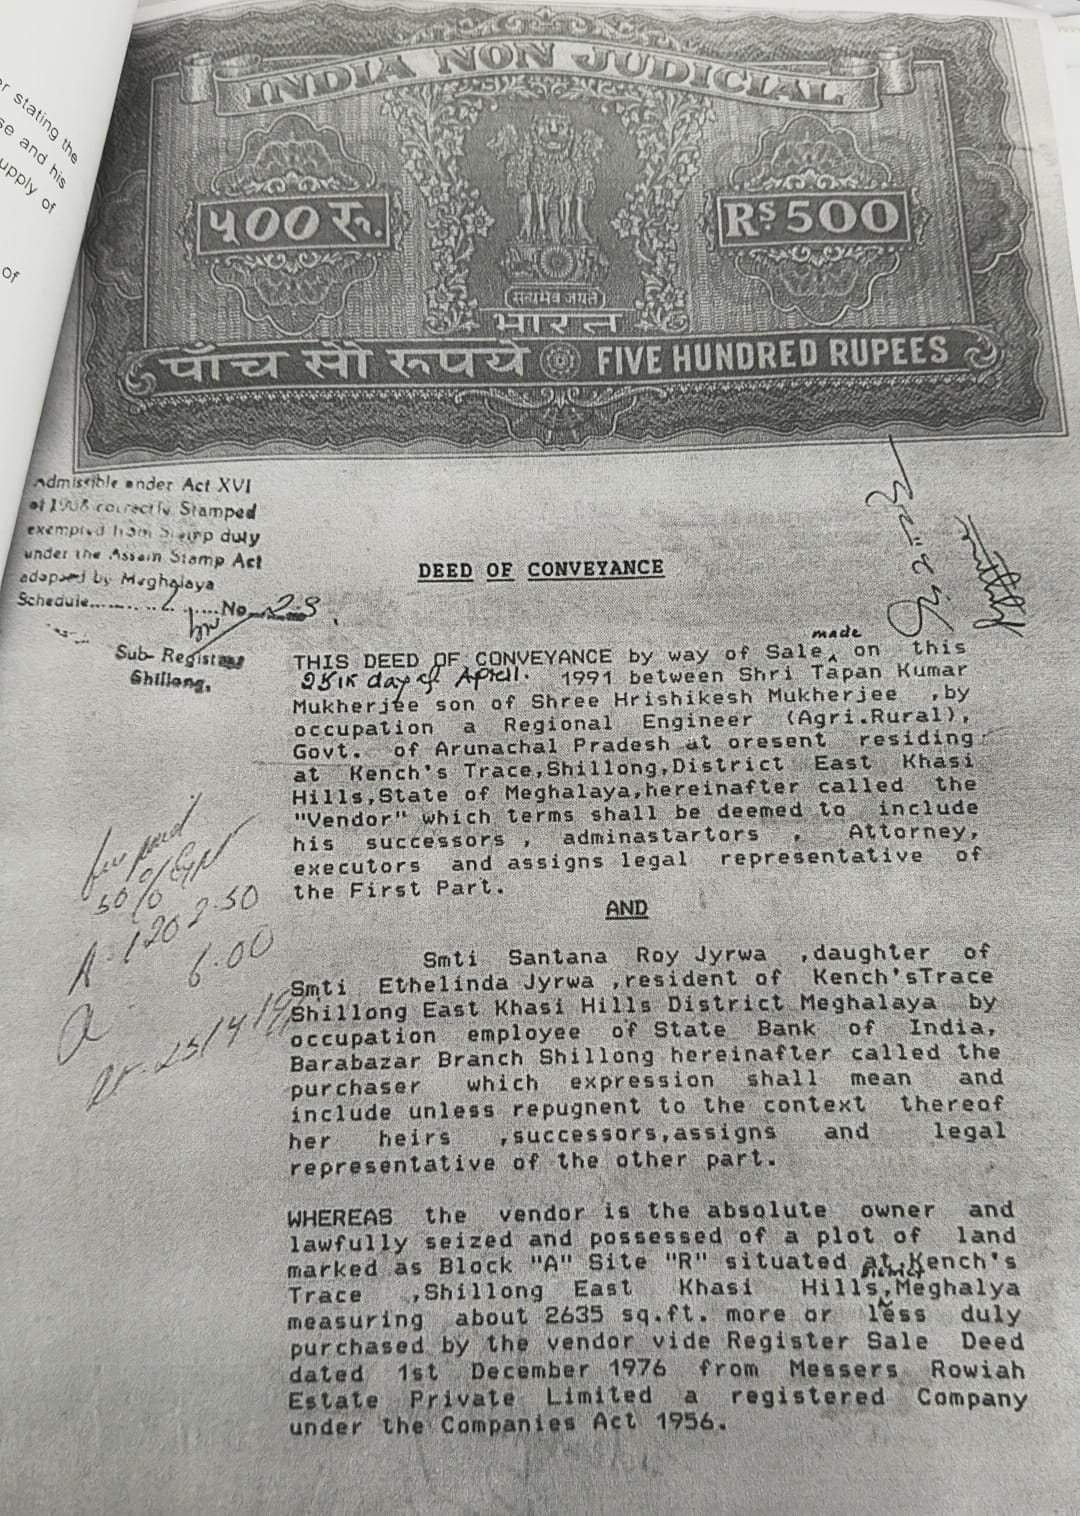 r stating the
se and his
upply of
of
INDIA NON JUDICIAL
५०० रु.
Rs 500
सत्यमेव जयते
भारत
पाँच सौ रुपये
FIVE HUNDRED RUPEES
Admissible under Act XVI
of 1908 correctly Stamped
exempted from Stamp duty
under the Assam Stamp Act
adopted by Meghalaya
Schedule............No 23.
Sub-Registrar
Shillong.
DEED OF CONVEYANCE
made
THIS DEED OF CONVEYANCE by way of Sale, on this
25th day of April. 1991 between Shri Tapan Kumar
Mukherjee son of Shree Hrishikesh Mukherjee ,by
occupation a Regional Engineer (Agri.Rural),
Govt. of Arunachal Pradesh at oresent residing
at Kench's Trace,Shillong,District East Khasi
Hills,State of Meghalaya,hereinafter called the
"Vendor" which terms shall be deemed to include
his successors , adminastartors , Attorney,
executors and assigns legal representative of
the First Part.
fee paid
50/0
A-1202.50
6.00
25/4/91
AND
Smti Santana Roy Jyrwa ,daughter of
Smti Ethelinda Jyrwa ,resident of Kench'sTrace
Shillong East Khasi Hills District Meghalaya by
occupation employee of State Bank of India,
Barabazar Branch Shillong hereinafter called the
purchaser which expression shall mean and
include unless repugnent to the context thereof
her heirs ,successors,assigns and legal
representative of the other part.
WHEREAS the vendor is the absolute owner and
lawfully seized and possessed of a plot of land
marked as Block "A" Site "R" situated at Kench's
District
Trace ,Shillong East Khasi Hills,Meghalya
measuring about 2635 sq.ft. more or less duly
purchased by the vendor vide Register Sale Deed
dated 1st December 1976 from Messers Rowiah
Estate Private Limited a registered Company
under the Companies Act 1956.